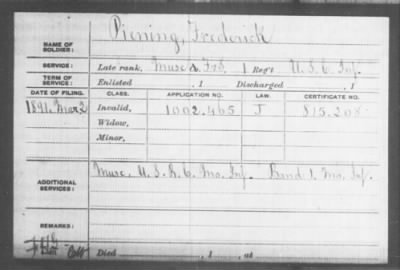 Piening, Frederick
NAME OF SOLDIER:
SERVICE: Late rank, Musc & FrS, 1 Reg't U.S.C. Inf.
TERM OF SERVICE: Enlisted , 1 Discharged , 1
DATE OF FILING. CLASS. APPLICATION NO. LAW. CERTIFICATE NO.
1891, Mar 2 Invalid, 1002,465 J 815,208
Widow,
Minor,
ADDITIONAL SERVICES: Musc, U.S.R.C. Mo. Inf. Band 1, Mo. Inf.
REMARKS:
Died , 1 , at